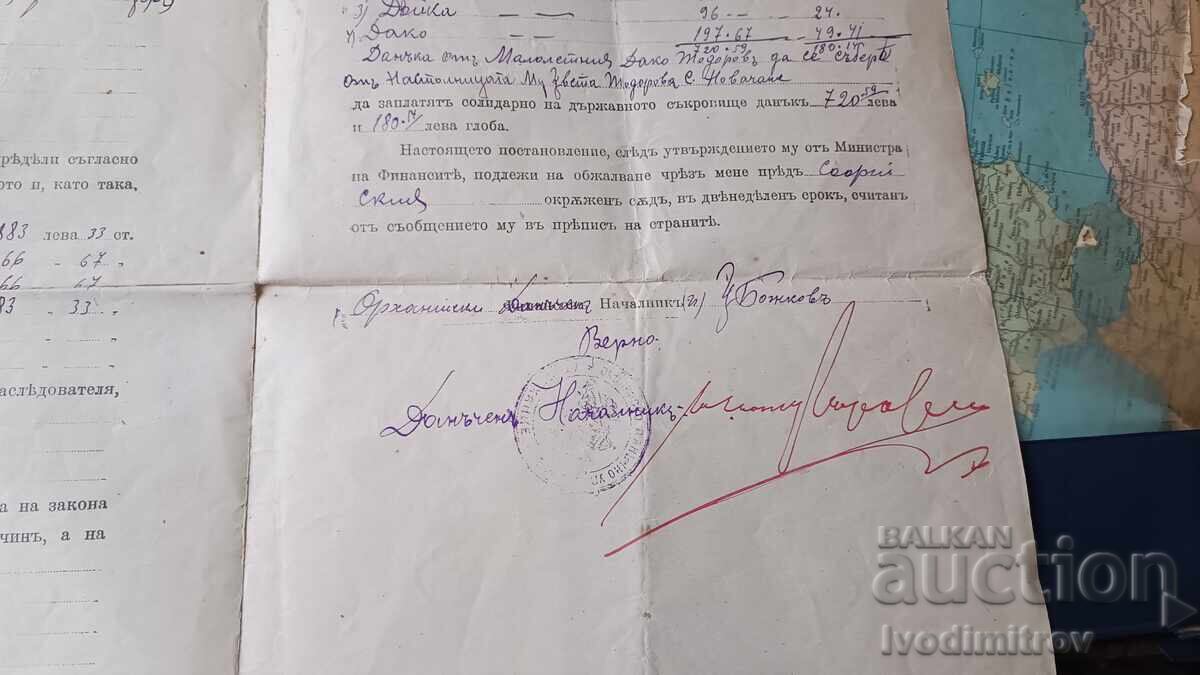 3) Дойка — — 96 — — 24.
4) Дако — — 197.67 — 49.41
720.59 180.14
Данъка отъ Малолетния Дако Тодоровъ да се събере
отъ Настолницата Му Цвета Тодорова с. Новачане
да заплатятъ солидарно на държавното съкровище данъкъ 720.59 лева
и 180.14 лева глоба.
Настоящето постановление, слѣдъ утвърждението му отъ Министра
на Финанситѣ, подлежи на обжалване чрѣзъ мене прѣдъ Софий
ския окрѫженъ сѫдъ, въ двѣнедѣленъ срокъ, считанъ
отъ съобщението му въ прѣписъ на странитѣ.
Орханийски Началникъ (п) Божковъ
Верно:
Данъченъ Началникъ:
рѣдѣли съгласно
ото и, като така,
883 лева 33 ст.
66 - 67 „
66 - 67 „
83 - 33 „
аслѣдователя,
а на закона
чинъ, а на
BALKAN
auction
Ivodimitrov